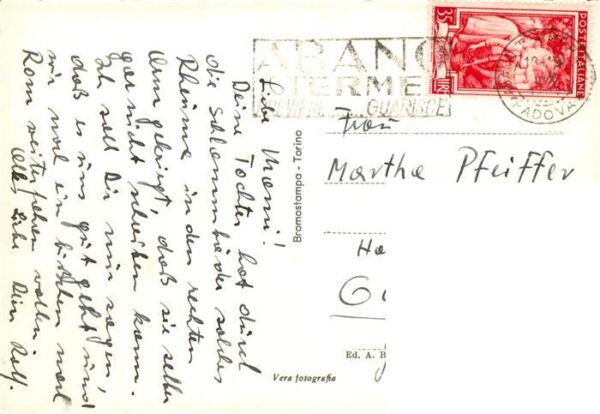 Liebe Mammi!
Deine Tochter hat durch
die Schlammbäder solches
Rheuma in den rechten
Arm gekriegt, daß sie selber
gar nicht schreiben kann.
Ich soll Dir nun sagen,
daß es uns gut geht und
wir mal ein bißchen nach
Rom weiterfahren wollen.
Alles Liebe Dein Rolf.
Bromostampa - Torino
ABANO
TERME
GUARISCE
35
LIRE
POSTE ITALIANE
PADOVA
Frau
Martha Pfeiffer
Ha
G
Ed. A. B
Vera fotografia